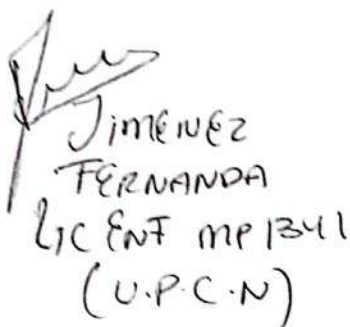 JIMENEZ
FERNANDA
LIC ENF MP 1341
(U.P.C.N)